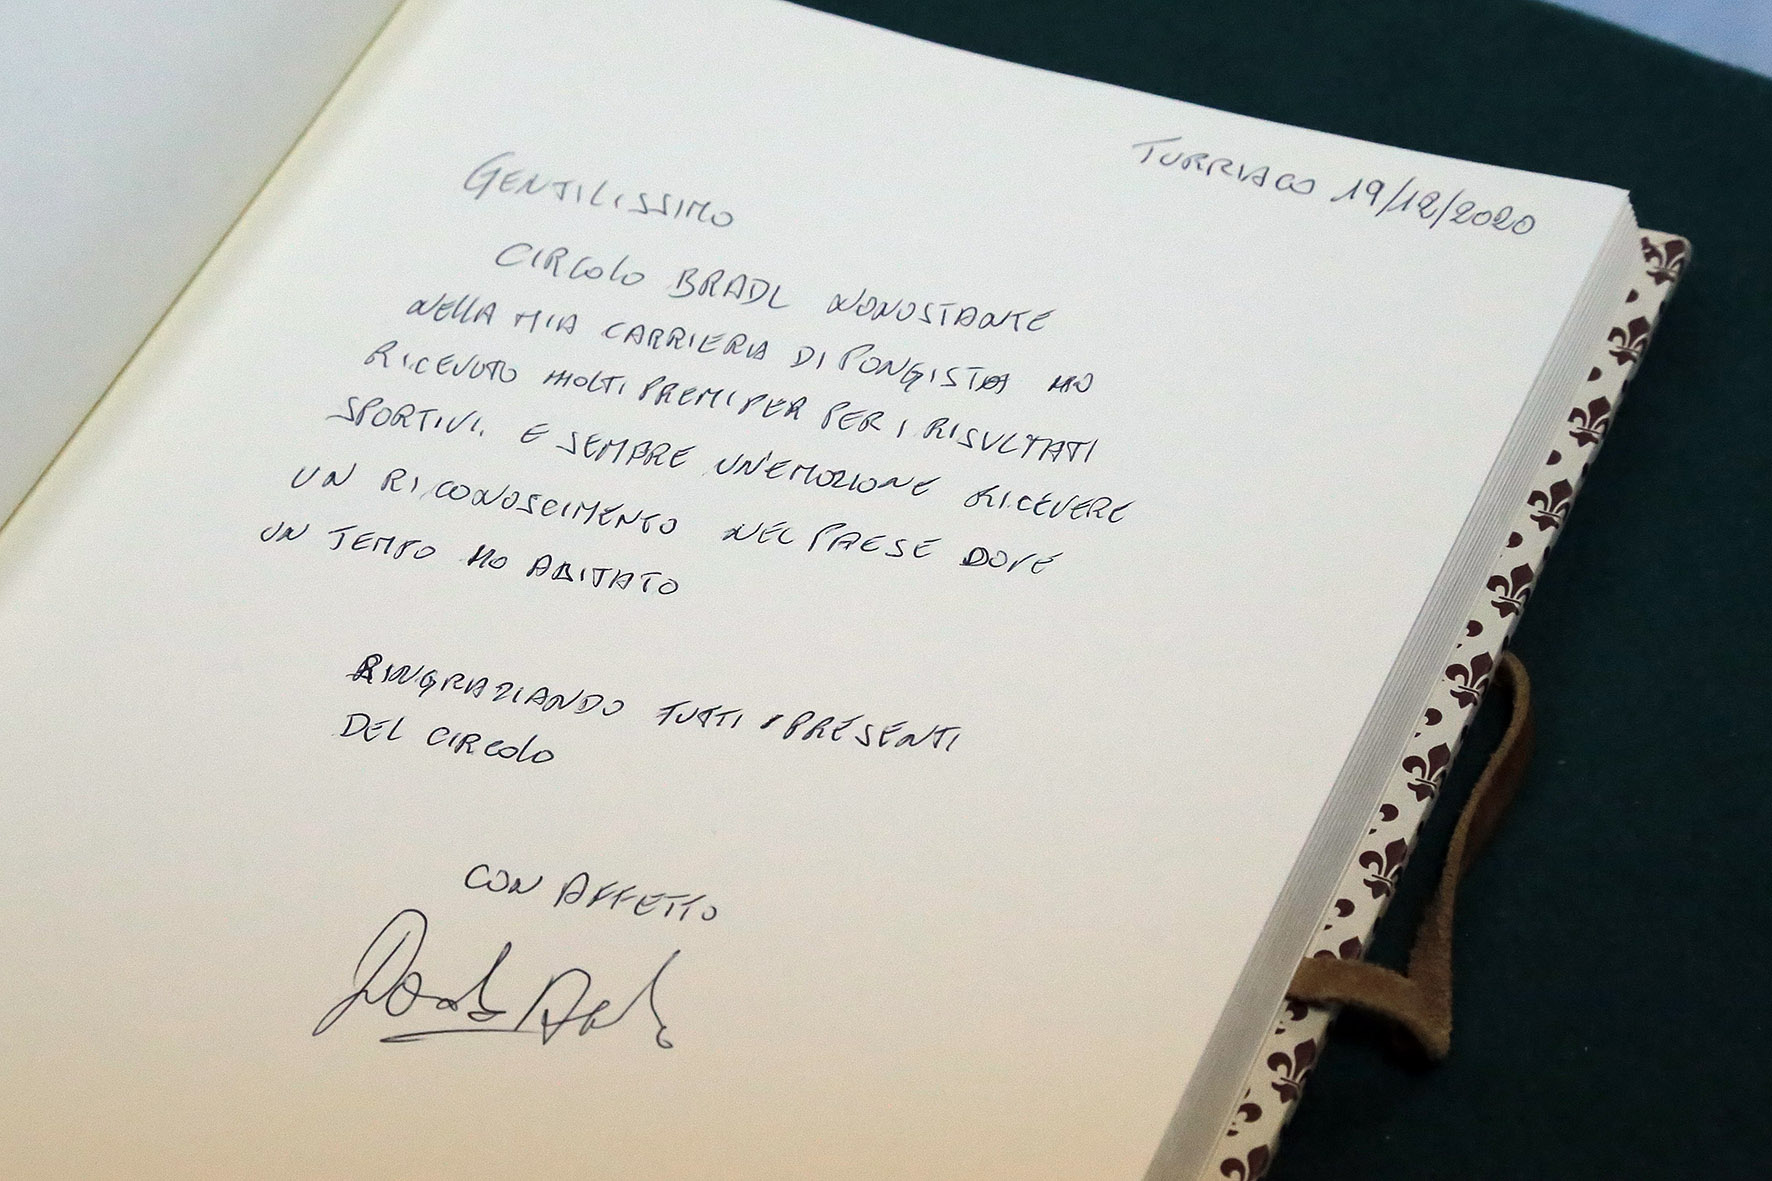 TURRIACO 19/12/2020
GENTILISSIMO
CIRCOLO BRADL NONOSTANTE
NELLA MIA CARRIERA DI PONGISTA HO
RICEVUTO MOLTI PREMI PER PER I RISULTATI
SPORTIVI. E SEMPRE UN'EMOZIONE RICEVERE
UN RICONOSCIMENTO NEL PAESE DOVE
UN TEMPO HO ABITATO
RINGRAZIANDO TUTTI I PRESENTI
DEL CIRCOLO
CON AFFETTO